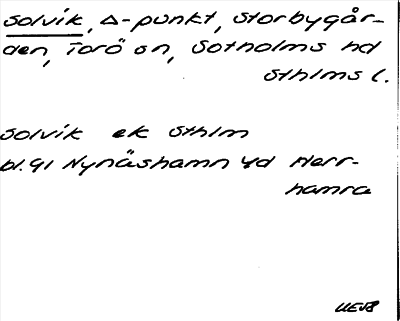 Solvik, Δ-punkt, Storbygår-
den, Torö sn, Sotholms hd
Sthlms l.
Solvik ek Sthlm
bl. 91 Nynäshamn 4d Herr-
hamra